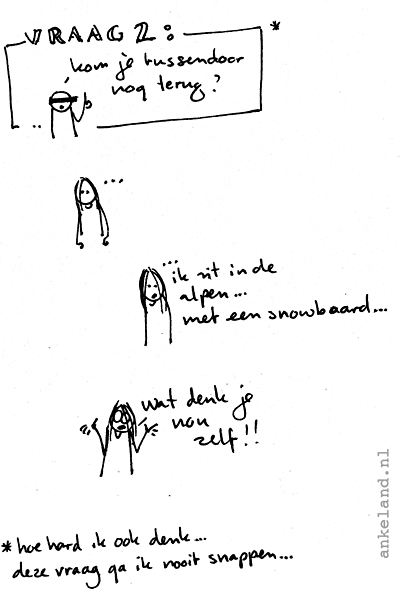 VRAAG 2: *
kom je tussendoor
nog terug?
...
...
ik zit in de
alpen...
met een snowbaard...
wat denk je
nou
zelf!!
* hoe hard ik ook denk...
deze vraag ga ik nooit snappen...
ankeland.nl